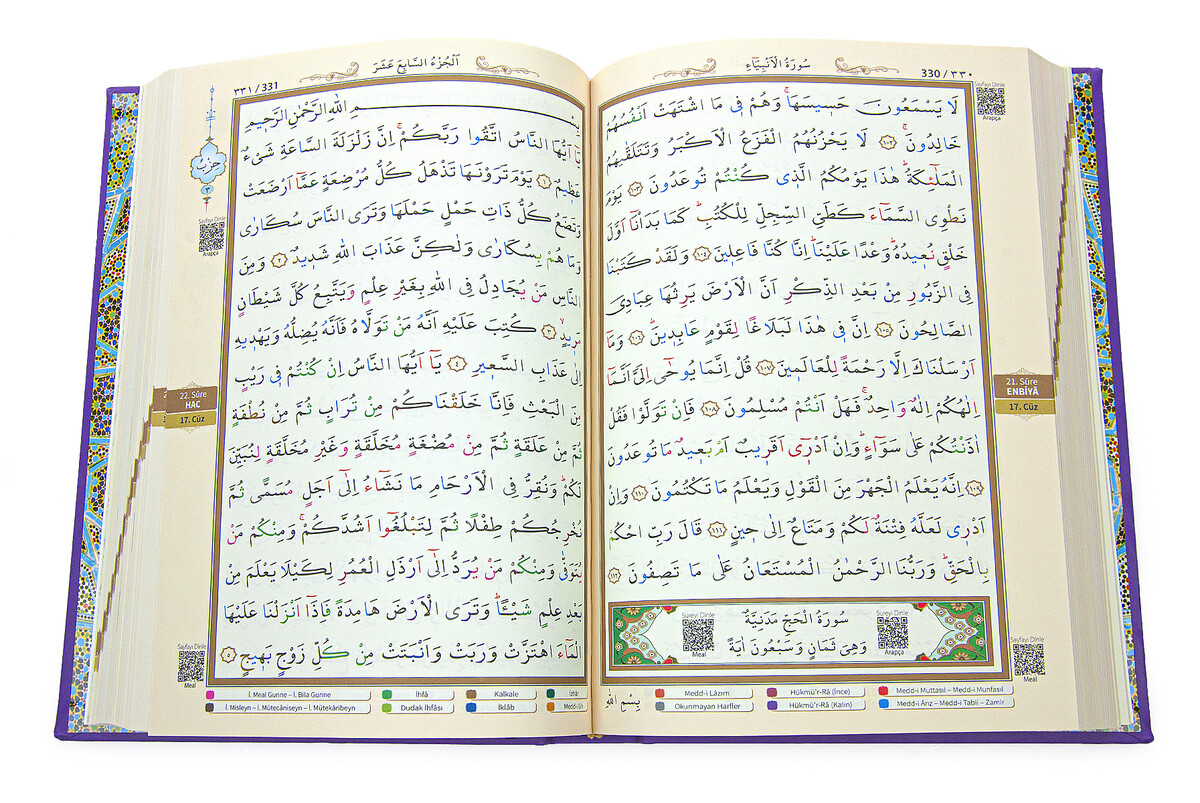 330 / ٣٣٠
سُورَةُ الْاَنْبِيَاءِ
Sayfayı Dinle
Arapça
لَا يَسْمَعُونَ حَسِيسَهَاۚ وَهُمْ فٖى مَا اشْتَهَتْ اَنْفُسُهُمْ
خَالِدُونَۚ ﴿١٠٢﴾ لَا يَحْزُنُهُمُ الْفَزَعُ الْاَكْبَرُ وَتَتَلَقّٰيهُمُ
الْمَلٰٓئِكَةُؕ هٰذَا يَوْمُكُمُ الَّذٖى كُنْتُمْ تُوعَدُونَ ﴿١٠٣﴾ يَوْمَ
نَطْوِى السَّمَٓاءَ كَطَىِّ السِّجِلِّ لِلْكُتُبِؕ كَمَا بَدَأْنَٓا اَوَّلَ
خَلْقٍ نُعٖيدُهُؕ وَعْدًا عَلَيْنَاؕ اِنَّا كُنَّا فَاعِلٖينَ ﴿١٠٤﴾ وَلَقَدْ كَتَبْنَا
فِى الزَّبُورِ مِنْ بَعْدِ الذِّكْرِ اَنَّ الْاَرْضَ يَرِثُهَا عِبَادِىَ
الصَّالِحُونَ ﴿١٠٥﴾ اِنَّ فٖى هٰذَا لَبَلَاغًا لِقَوْمٍ عَابِدٖينَؕ ﴿١٠٦﴾ وَمَٓا
اَرْسَلْنَاكَ اِلَّا رَحْمَةً لِلْعَالَمٖينَ ﴿١٠٧﴾ قُلْ اِنَّمَا يُوحٰٓى اِلَىَّ اَنَّمَٓا
اِلٰهُكُمْ اِلٰهٌ وَاحِدٌۚ فَهَلْ اَنْتُمْ مُسْلِمُونَ ﴿١٠٨﴾ فَاِنْ تَوَلَّوْا فَقُلْ
اٰذَنْتُكُمْ عَلٰى سَوَٓاءٍؕ وَاِنْ اَدْرٖٓى اَقَرٖيبٌ اَمْ بَعٖيدٌ مَا تُوعَدُونَ
﴿١٠٩﴾ اِنَّهُ يَعْلَمُ الْجَهْرَ مِنَ الْقَوْلِ وَيَعْلَمُ مَا تَكْتُمُونَ ﴿١١٠﴾ وَاِنْ
اَدْرٖى لَعَلَّهُ فِتْنَةٌ لَكُمْ وَمَتَاعٌ اِلٰى حٖينٍ ﴿١١١﴾ قَالَ رَبِّ احْكُمْ
بِالْحَقِّؕ وَرَبُّنَا الرَّحْمٰنُ الْمُسْتَعَانُ عَلٰى مَا تَصِفُونَ ﴿١١٢﴾
21. Sûre
ENBİYÂ
17. Cüz
سُورَةُ الْحَجِّ مَدَنِيَّةٌ
وَهِىَ ثَمَانٍ وَسَبْعُونَ اٰيَةً
Sureyi Dinle
Arapça
Sureyi Dinle
Meal
Sayfayı Dinle
Meal
بِسْمِ اللّٰهِ
Medd-i Lâzım
Hükmü'r-Râ (İnce)
Medd-i Muttasıl – Medd-i Munfasıl
Okunmayan Harfler
Hükmü'r-Râ (Kalın)
Medd-i Ârız – Medd-i Tabiî – Zamir
٣٣١ / 331
اَلْجُزْءُ السَّابِعَ عَشَرَ
حزب
٢
Sayfayı Dinle
Arapça
بِسْمِ اللّٰهِ الرَّحْمٰنِ الرَّحٖيمِ
يَٓا اَيُّهَا النَّاسُ اتَّقُوا رَبَّكُمْۚ اِنَّ زَلْزَلَةَ السَّاعَةِ شَىْءٌ
عَظٖيمٌ ﴿١﴾ يَوْمَ تَرَوْنَهَا تَذْهَلُ كُلُّ مُرْضِعَةٍ عَمَّٓا اَرْضَعَتْ
وَتَضَعُ كُلُّ ذَاتِ حَمْلٍ حَمْلَهَا وَتَرَى النَّاسَ سُكَارٰى
وَمَا هُمْ بِسُكَارٰى وَلٰكِنَّ عَذَابَ اللّٰهِ شَدٖيدٌ ﴿٢﴾ وَمِنَ
النَّاسِ مَنْ يُجَادِلُ فِى اللّٰهِ بِغَيْرِ عِلْمٍ وَيَتَّبِعُ كُلَّ شَيْطَانٍ
مَرٖيدٍۙ ﴿٣﴾ كُتِبَ عَلَيْهِ اَنَّهُ مَنْ تَوَلَّاهُ فَاَنَّهُ يُضِلُّهُ وَيَهْدٖيهِ
اِلٰى عَذَابِ السَّعٖيرِ ﴿٤﴾ يَٓا اَيُّهَا النَّاسُ اِنْ كُنْتُمْ فٖى رَيْبٍ
مِنَ الْبَعْثِ فَاِنَّا خَلَقْنَاكُمْ مِنْ تُرَابٍ ثُمَّ مِنْ نُطْفَةٍ
ثُمَّ مِنْ عَلَقَةٍ ثُمَّ مِنْ مُضْغَةٍ مُخَلَّقَةٍ وَغَيْرِ مُخَلَّقَةٍ لِنُبَيِّنَ
لَكُمْؕ وَنُقِرُّ فِى الْاَرْحَامِ مَا نَشَٓاءُ اِلٰٓى اَجَلٍ مُسَمًّى ثُمَّ
نُخْرِجُكُمْ طِفْلًا ثُمَّ لِتَبْلُغُٓوا اَشُدَّكُمْۚ وَمِنْكُمْ مَنْ
يُتَوَفّٰى وَمِنْكُمْ مَنْ يُرَدُّ اِلٰٓى اَرْذَلِ الْعُمُرِ لِكَيْلَا يَعْلَمَ مِنْ
بَعْدِ عِلْمٍ شَيْـًٔاؕ وَتَرَى الْاَرْضَ هَامِدَةً فَاِذَٓا اَنْزَلْنَا عَلَيْهَا
الْمَٓاءَ اهْتَزَّتْ وَرَبَتْ وَاَنْبَتَتْ مِنْ كُلِّ زَوْجٍ بَهٖيجٍ ﴿٥﴾
22. Sûre
HAC
17. Cüz
Sayfayı Dinle
Meal
İ. Meal Gunne – İ. Bila Gunne
İhfâ
Kalkale
İzhâr
İ. Misleyn – İ. Mütecâniseyn – İ. Mütekâribeyn
Dudak İhfâsı
İklâb